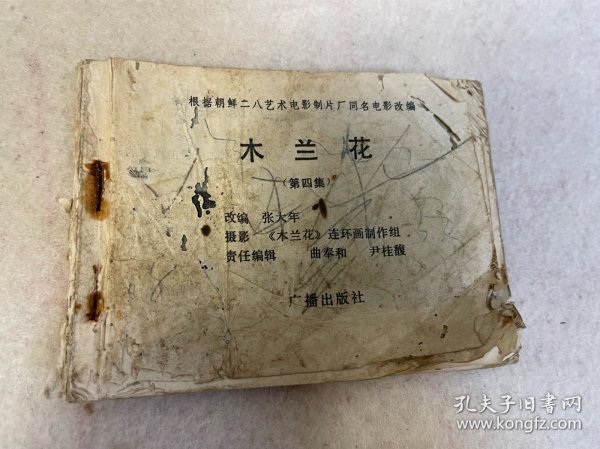 根据朝鲜二八艺术电影制片厂同名电影改编
木兰花
（第四集）
改编 张大年
摄影 《木兰花》连环画制作组
责任编辑 曲奉和 尹桂馥
广播出版社
孔夫子旧书网
www.kongfz.com